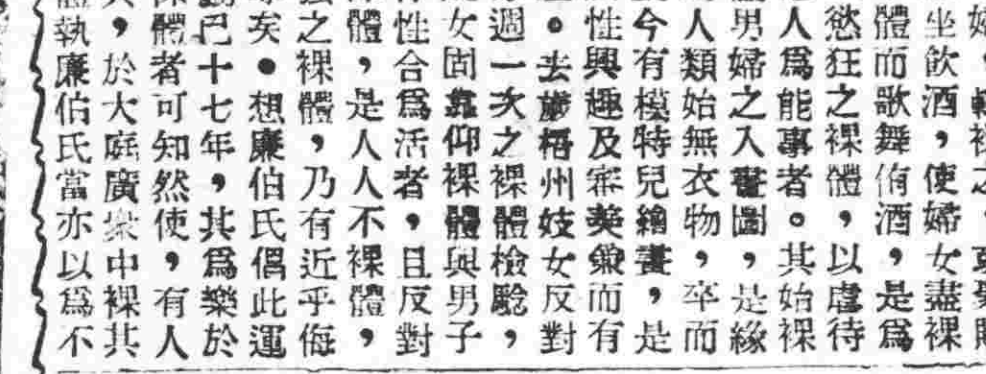 坐飲酒，使婦女盡裸
體而歌舞侑酒，是爲
慾狂之裸體，以虐待
人爲能事者。其始裸
男婦之入畫圖，是緣
人類始無衣物，卒而
今有模特兒繪畫，是
性興趣及審美兼而有
。去歲梧州妓女反對
週一次之裸體檢驗，
女固靠仰裸體與男子
性合爲活者，且反對
體，是人人不裸體，
之裸體，乃有近乎侮
矣●想廉伯氏倡此運
巳十七年，其爲樂於
體者可知然使，有人
，於大庭廣衆中裸其
執廉伯氏當亦以爲不